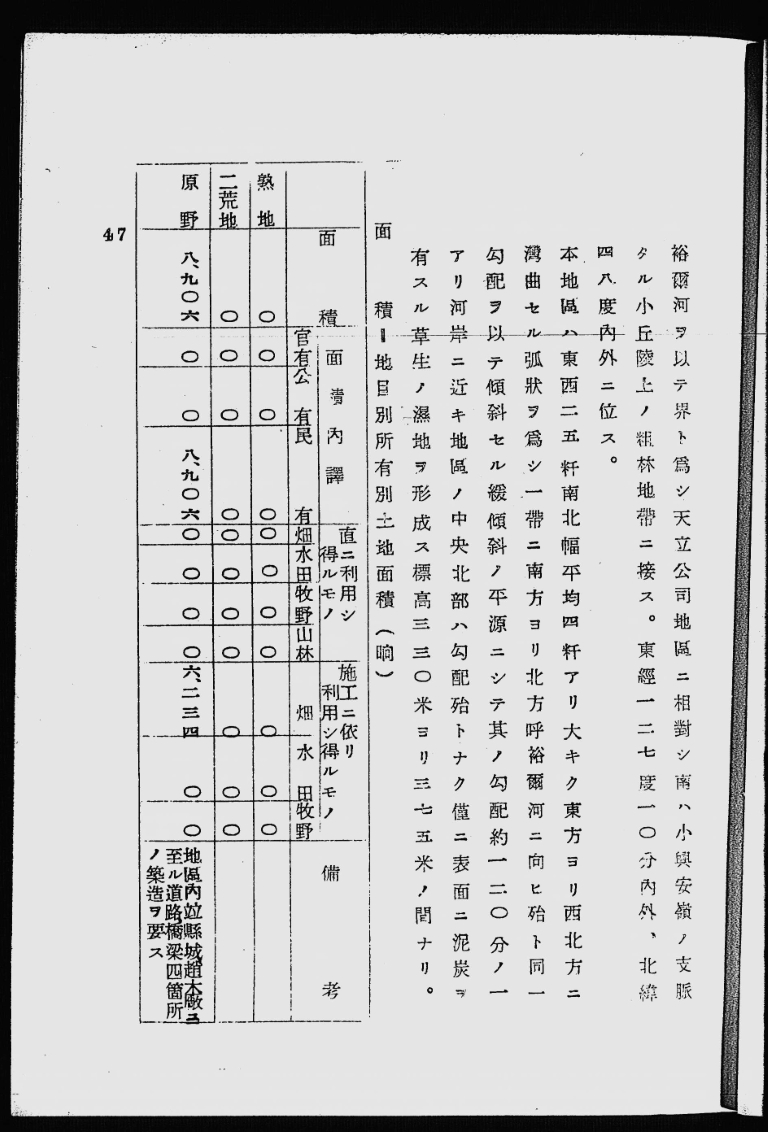 裕爾河ヲ以テ界ト爲シ天立公司地區ニ相對シ南ハ小興安嶺ノ支脈
タル小丘陵上ノ粗林地帶ニ接ス。東經一二七度一〇分內外、北緯
四八度內外ニ位ス。
本地區ハ東西二五粁南北幅平均四粁アリ大キク東方ヨリ西北方ニ
灣曲セル弧狀ヲ爲シ一帶ニ南方ヨリ北方呼裕爾河ニ向ヒ殆ト同一
勾配ヲ以テ傾斜セル緩傾斜ノ平源ニシテ其ノ勾配約一二〇分ノ一
アリ河岸ニ近キ地區ノ中央北部ハ勾配殆トナク僅ニ表面ニ泥炭ヲ
有スル草生ノ濕地ヲ形成ス標高三三〇米ヨリ三七五米ノ間ナリ。
面積ー地目別所有別土地面積（晌）
面積 面積內譯 直ニ利用シ得ルモノ 施工ニ依リ利用シ得ルモノ 備考
官有 公有 民有 畑 水田 牧野 山林 畑 水田 牧野
熟地 〇 〇 〇 〇 〇 〇 〇 〇 〇 〇 〇
二荒地 〇 〇 〇 〇 〇 〇 〇 〇 〇 〇 〇
原野 八、九〇六 〇 〇 八、九〇六 〇 〇 〇 〇 六、二三四 〇 〇
地區內竝縣城趙木廠ニ
至ル道路橋梁四箇所
ノ築造ヲ要ス
47